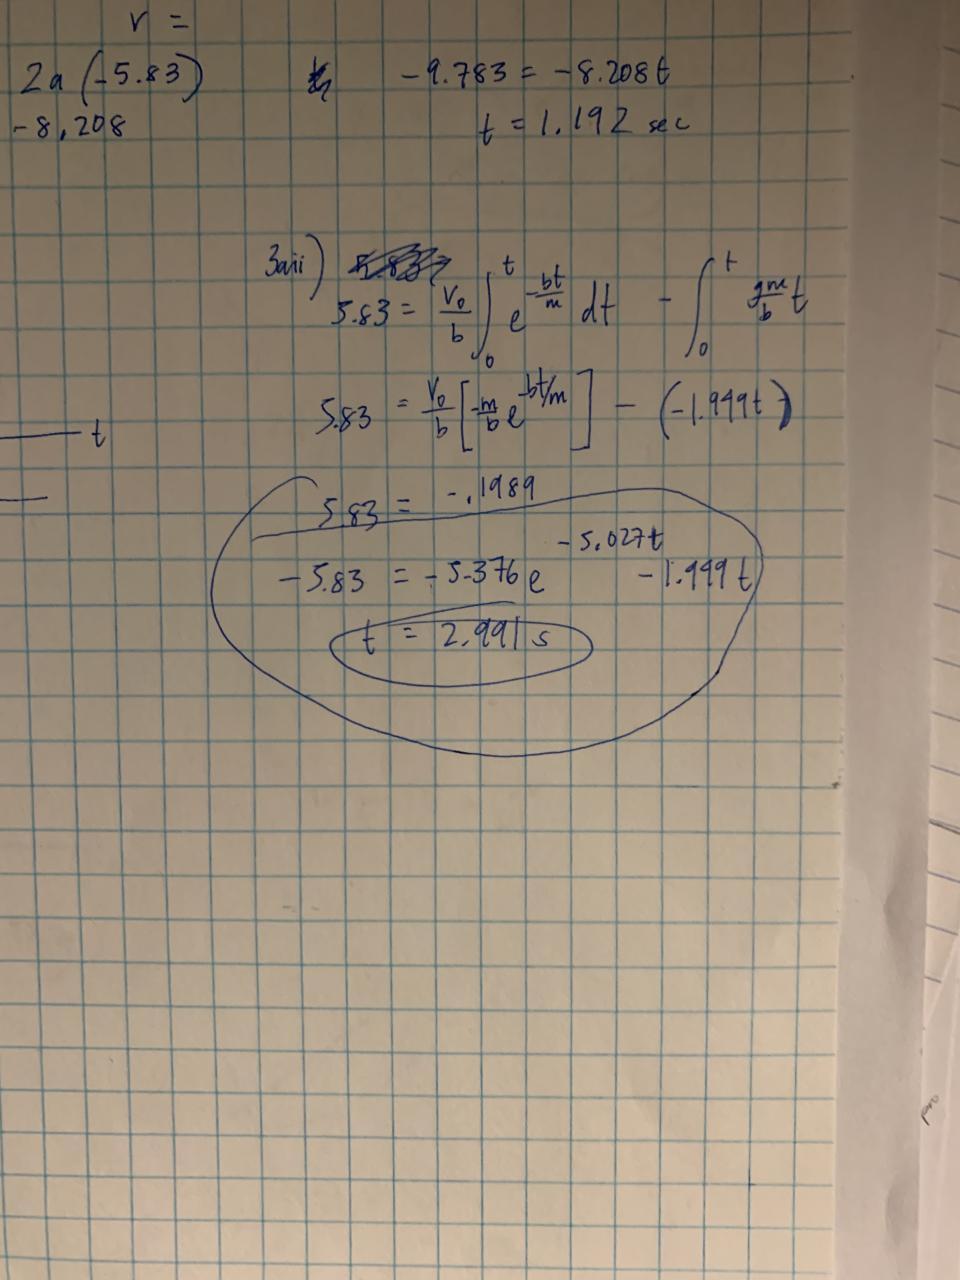 v =
2a (-5.83)
-8.208
-9.783 = -8.208t
t = 1.192 sec
3aiii)
5.83 = V₀/b ∫₀ᵗ e^(-bt/m) dt - ∫₀ᵗ gm/b t
5.83 = V₀/b [-m/b e^(-bt/m)] - (-1.949t)
t
5.83 = -.1989
-5.83 = -5.376 e^(-5.027t) -1.949 t
t = 2.991 s
pro